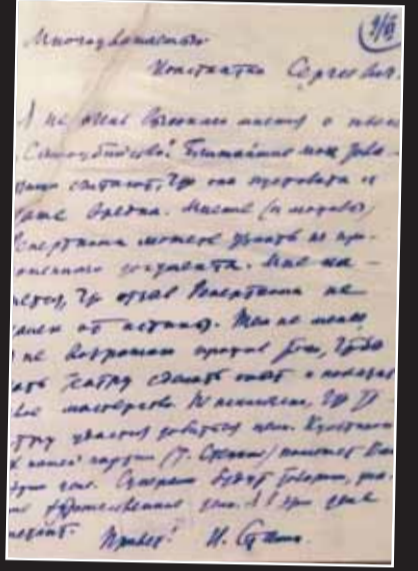 9/XI
Многоуважаемый
Константин Сергеевич!
Я не очень высокого мнения о пьесе
"Самоубийство". Ближайшие мои това-
рищи считают, что она пустовата и
даже вредна. Мнение (и мотивы)
Реперткома можете узнать из при-
ложенного документа. Мне ка-
жется, что отзыв Реперткома не
далек от истины. Тем не менее
я не возражаю против того, чтобы
дать театру сделать опыт и показать
свое мастерство. Не исключено, что те-
атру удастся добиться цели. Культпроп
ЦК нашей партии (т. Стецкий) поможет Вам
в этом деле. Суперами будут товарищи, зна-
ющие художественное дело. Я в этом деле
дилетант.
Привет! И. Сталин.